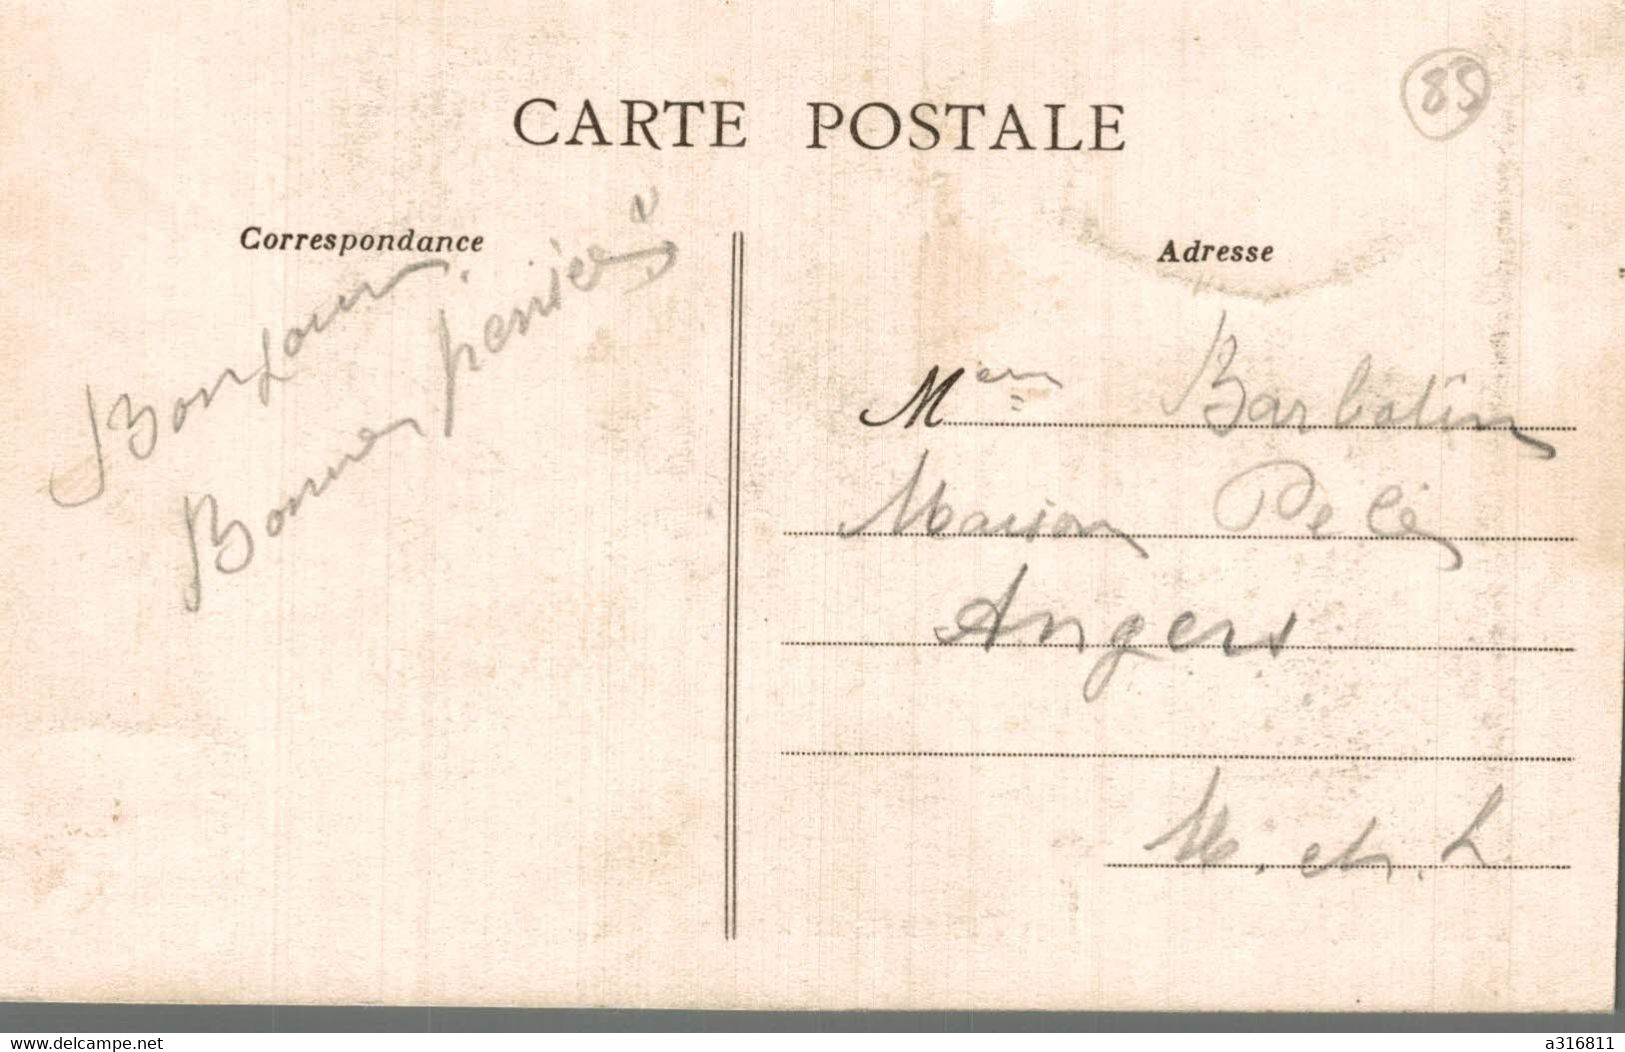 CARTE POSTALE
85
Correspondance
Bonjour
Bonnes pensées
Adresse
Mem Barbotin
Maison Pelé
Angers
M. et. L
www.delcampe.net
a316811